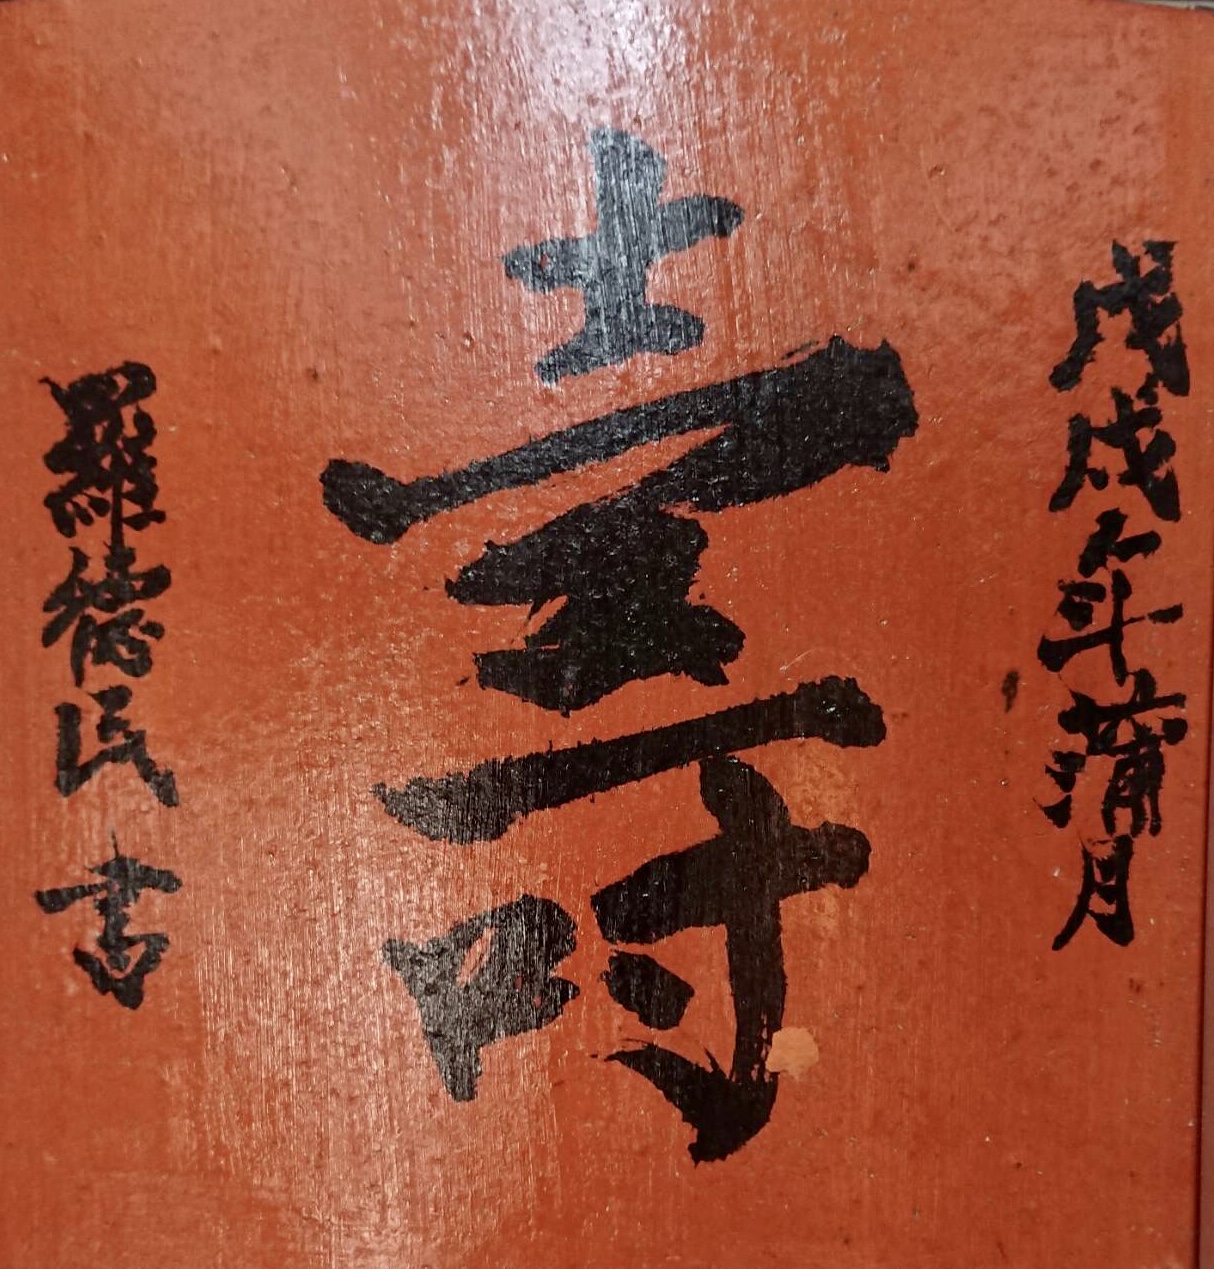 戊戌年蒲月
壽
羅德民書